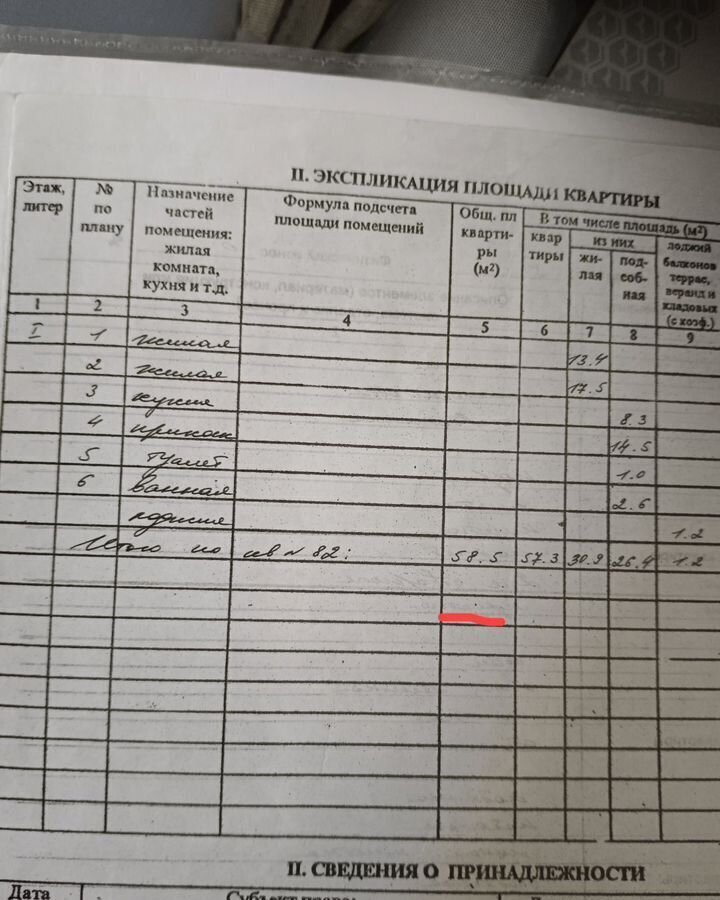 II. ЭКСПЛИКАЦИЯ ПЛОЩАДИ КВАРТИРЫ
Этаж, литер
№ по плану
Назначение частей помещения: жилая комната, кухня и т.д.
Формула подсчета площади помещений
Общ. пл кварти-ры (м²)
В том числе площадь (м²)
квар тиры
из них
жи-лая
под-соб-ная
лоджий балконов террас, веранд и кладовых (с коэф.)
1 2 3 4 5 6 7 8 9
I 1 жилая 13.4
2 жилая 17.5
3 кухня 8.3
4 прихож 14.5
5 туалет 1.0
6 ванная 2.6
лоджия 1.2
Итого по кв № 82: 58.5 57.3 30.9 26.4 1.2
II. СВЕДЕНИЯ О ПРИНАДЛЕЖНОСТИ
Дата